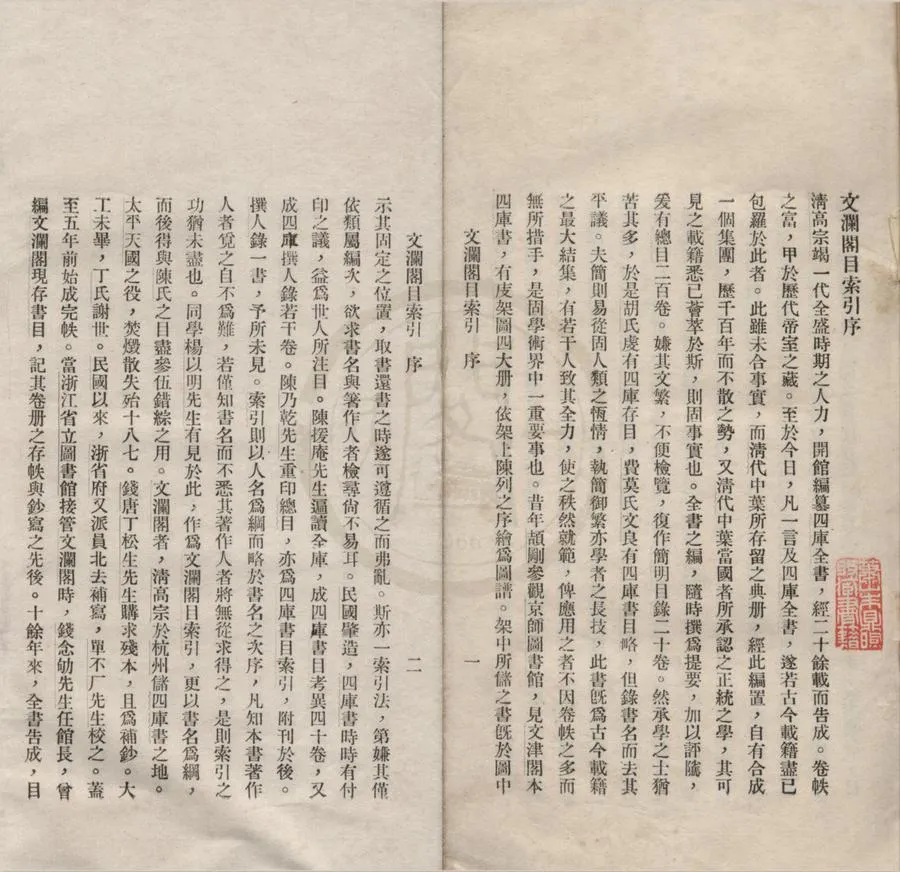 文瀾閣目索引序
清高宗竭一代全盛時期之人力，開館編纂四庫全書，經二十餘載而告成。卷帙
之富，甲於歷代帝室之藏。至於今日，凡一言及四庫全書，遂若古今載籍盡已
包羅於此者。此雖未合事實，而清代中葉所存留之典册，經此編置，自有合成
一個集團，歷千百年而不散之勢，又清代中葉當國者所承認之正統之學，其可
見之載籍悉已薈萃於斯，則固事實也。全書之編，隨時撰爲提要，加以評隲，
爰有總目二百卷。嫌其文繁，不便檢覽，復作簡明目錄二十卷。然承學之士猶
苦其多，於是胡氏虔有四庫存目，費莫氏文良有四庫書目略，但錄書名而去其
平議。夫簡則易從固人類之恆情，執簡御繁亦學者之長技，此書旣爲古今載籍
之最大結集，有若干人致其全力，使之秩然就範，俾應用之者不因卷帙之多而
無所措手，是固學術界中一重要事也。昔年頡剛參觀京師圖書館，見文津閣本
四庫書，有庋架圖四大册，依架上陳列之序繪爲圖譜。架中所儲之書旣於圖中
文瀾閣目索引　序　一
文瀾閣目索引　序　二
示其固定之位置，取書還書之時遂可遵循之而弗亂。斯亦一索引法，第嫌其僅
依類屬編次，欲求書名與著作人者檢尋尙不易耳。民國肇造，四庫書時時有付
印之議，益爲世人所注目。陳援庵先生遍讀全庫，成四庫書目考異四十卷，又
成四庫撰人錄若干卷。陳乃乾先生重印總目，亦爲四庫書目索引，附刊於後。
撰人錄一書，予所未見。索引則以人名爲綱而略於書名之次序，凡知本書著作
人者覓之自不爲難，若僅知書名而不悉其著作人者將無從求得之，是則索引之
功猶未盡也。同學楊以明先生有見於此，作爲文瀾閣目索引，更以書名爲綱，
而後得與陳氏之目盡參伍錯綜之用。文瀾閣者，清高宗於杭州儲四庫書之地。
太平天國之役，焚燬散失殆十八七。錢唐丁松生先生購求殘本，且爲補鈔。大
工未畢，丁氏謝世。民國以來，浙省府又派員北去補寫，單不厂先生校之。蓋
至五年前始成完帙。當浙江省立圖書館接管文瀾閣時，錢念劬先生任館長，曾
編文瀾閣現存書目，記其卷册之存帙與鈔寫之先後。十餘年來，全書告成，目